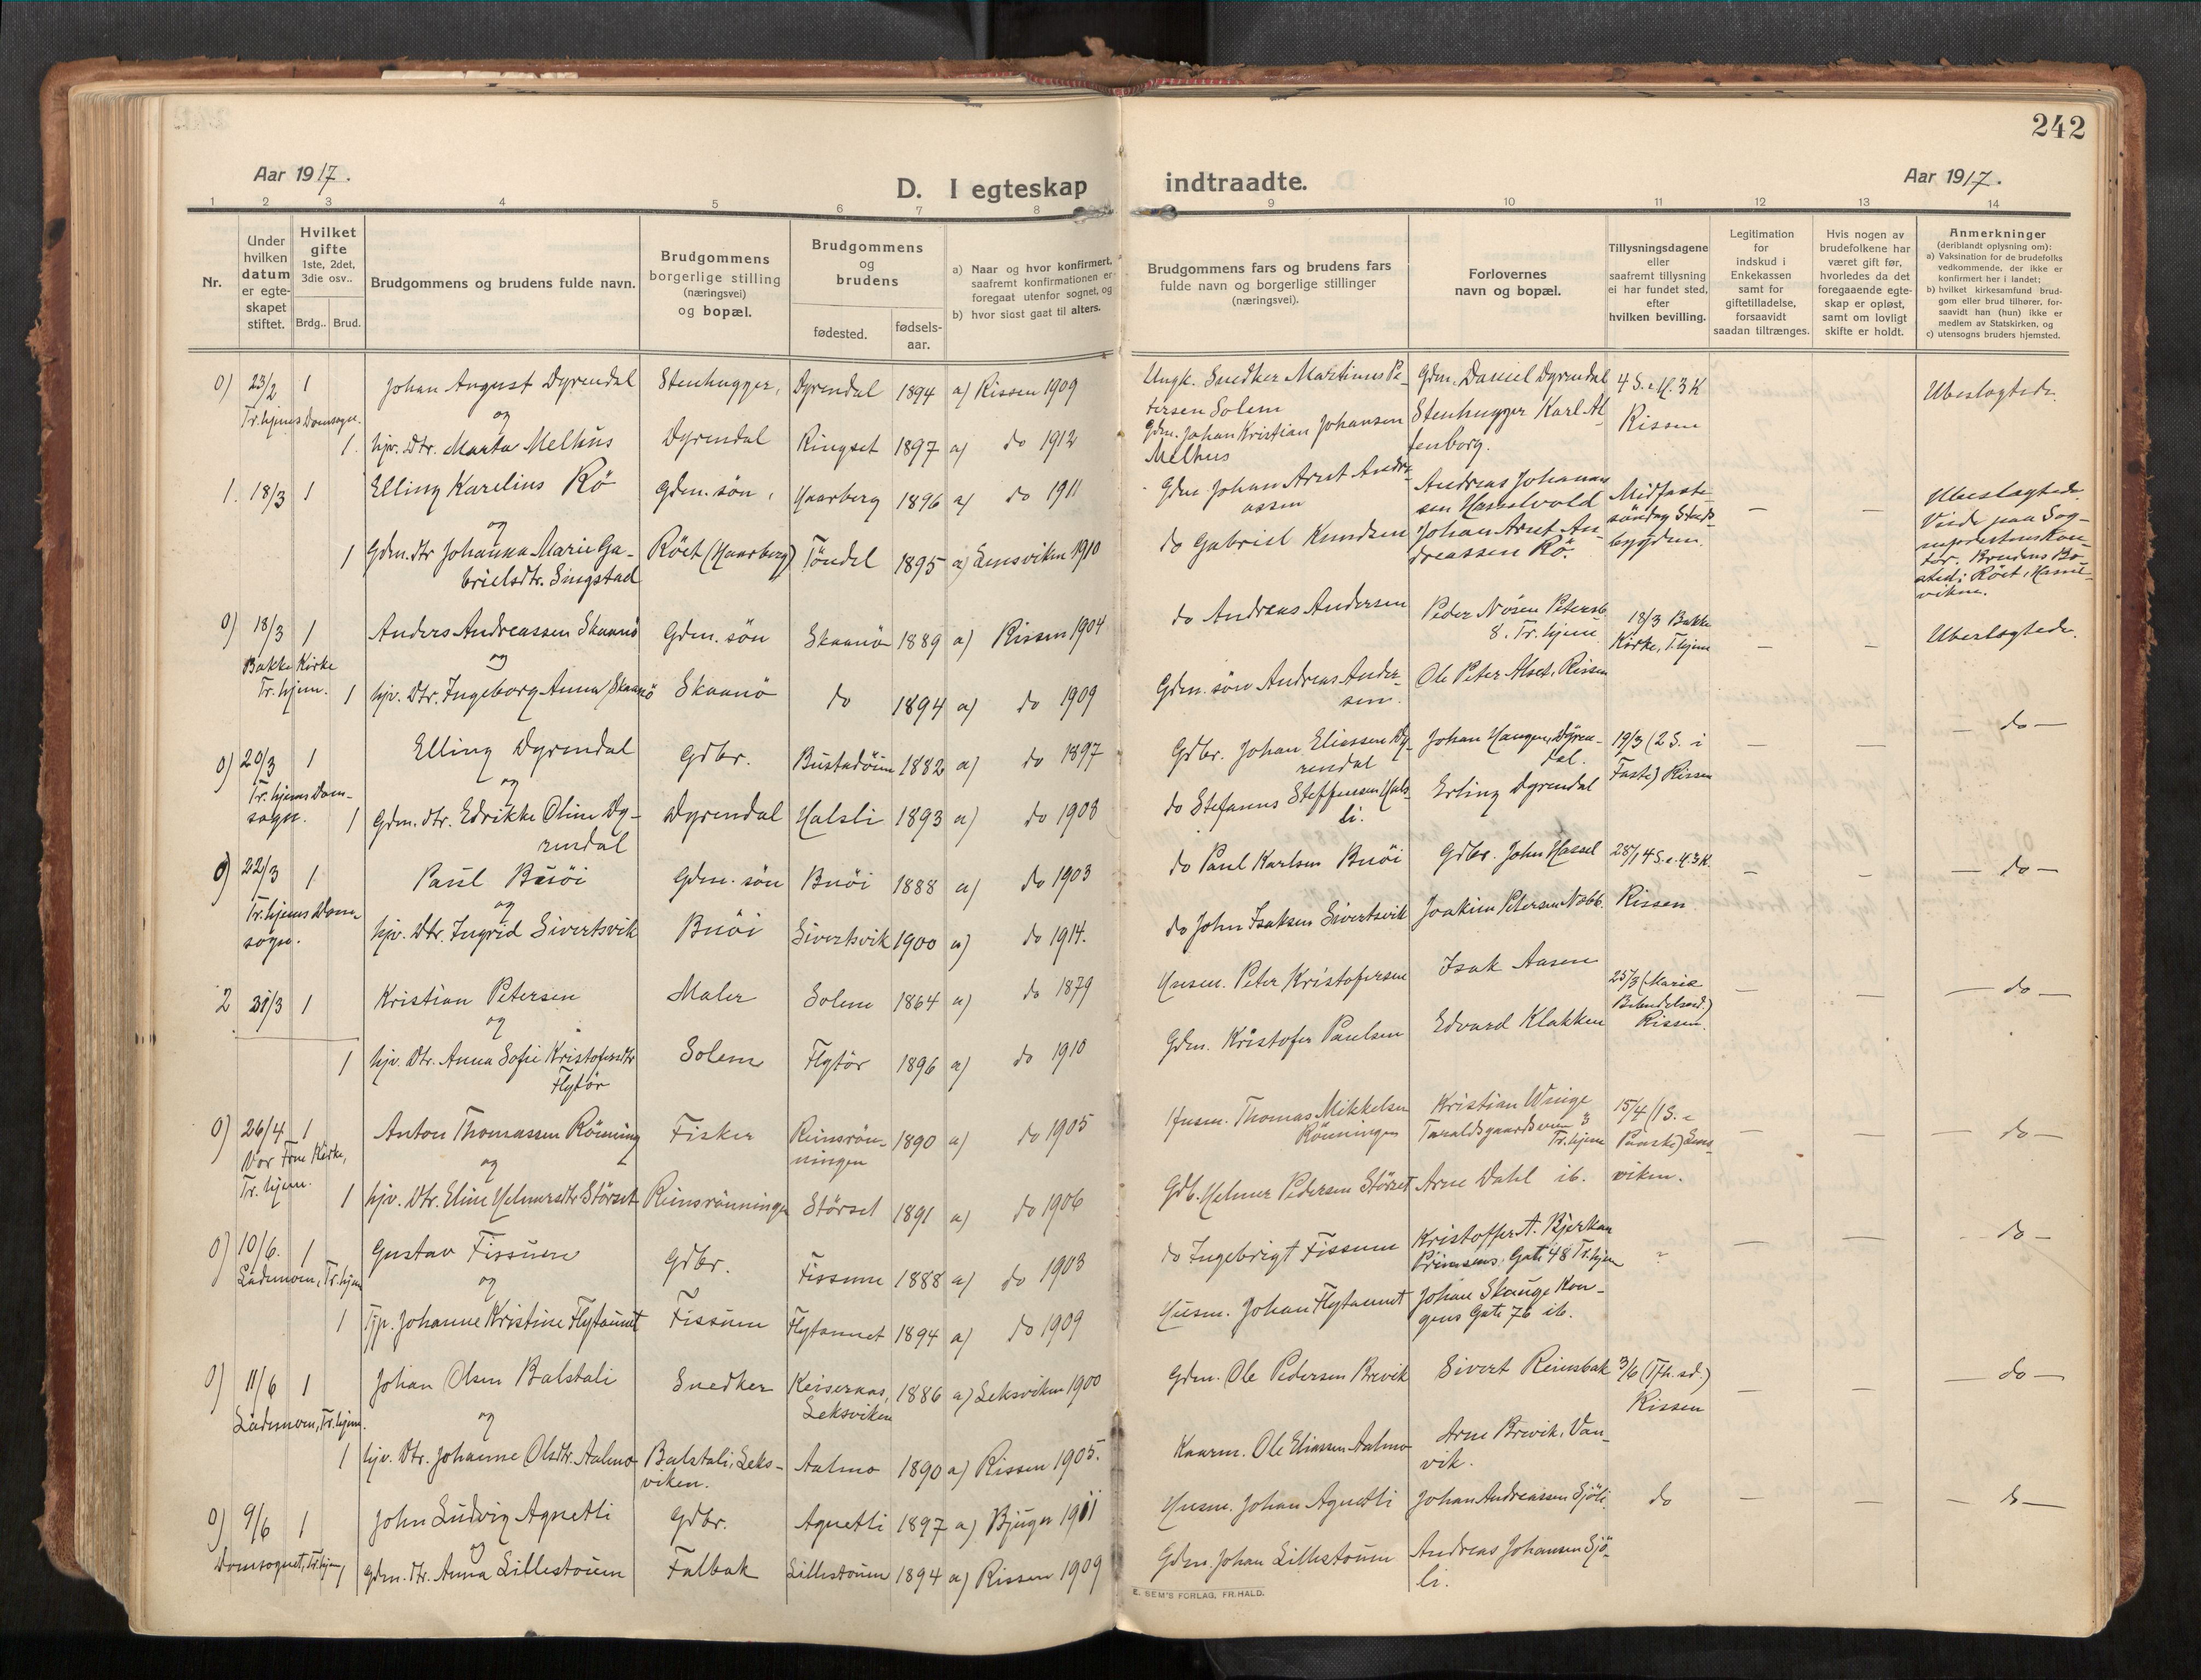 242
Aar 1917.
D. I egteskap
indtraadte.
Aar 1917.
1 2 3 4 5 6 7 8
9 10 11 12 13 14
Nr.
Under hvilken datum er egteskapet stiftet.
Hvilket gifte 1ste, 2det, 3die osv..
Brdg.. Brud.
Brudgommens og brudens fulde navn.
Brudgommens borgerlige stilling (næringsvei) og bopæl.
Brudgommens og brudens
fødested.
fødsels-aar.
a) Naar og hvor konfirmert, saafremt konfirmationen er foregaat utenfor sognet, og
b) hvor sidst gaat til alters.
Brudgommens fars og brudens fars fulde navn og borgerlige stillinger (næringsvei).
Forlovernes navn og bopæl.
Tillysningsdagene eller saafremt tillysning ei har fundet sted, efter hvilken bevilling.
Legitimation for indskud i Enkekassen samt for giftetilladelse, forsaavidt saadan tiltrænges.
Hvis nogen av brudefolkene har været gift før, hvorledes da det foregaaende egteskap er opløst, samt om lovligt skifte er holdt.
Anmerkninger
(deriblandt oplysning om):
a) Vaksination for de brudefolks vedkommende, der ikke er konfirmert her i landet;
b) hvilket kirkesamfund brudgom eller brud tilhører, forsaavidt han (hun) ikke er medlem av Statskirken, og
c) utensogns bruders hjemsted.
0) 23/2 1 Johan August Dyrendal Stenhugger, Dyrendal 1894 a) Rissen 1909 Ungk. Snedker Martinus Pe- Gdm. Daniel Dyrendal 4 S. e. H. 3 K Ubeslægtede.
Tr.hjems Domsogn. og tersen Solem Stenhugger Karl Al- Rissen
1. hjv. Dtr. Marta Melhus Dyrendal Ringset 1897 a) do 1912 Gdm. Johan Kristian Johansen Melhus tenborg.
1. 18/3 1 Elling Karelius Rö Gdm. sön, Haarberg 1896 a) do 1911 Gdm. Johan Arnt Andre- Andreas Johannes- Midfaste- Ubeslægtede.
og assen sen Hasselvold söndag Stads-
1 Gdm. dtr Johanna Marie Ga- Röet (Haarberg) Töndel 1895 a) Lensviken 1910 do Gabriel Knudsen Johan Arnt An- bygden.
brielsdtr. Singstad dreassen Rö.
Brudens Bo-
sted: Röet, Hassel-
viken.
0) 18/3 1 Anders Andreassen Skaanö Gdm. sön Skaanö 1889 a) Rissen 1904 do Andreas Andersen 18/3 Bakke Ubeslægtede.
Bakke Kirke og 8. Tr. hjem. Kirke, T.hjem
Tr. hjem. 1 hjv. Dtr. Ingeborg Anna Skaanö Skaanö do 1894 a) do 1909 Gdm. sön Andreas Ander- Ole Peter Alset, Rissen
sen.
0) 20/3 1 Elling Dyrendal Gdbr. 1882 a) do 1897 Gdbr. Johan Eliassen Dy- Johan Haugen, Dyren- 19/3 (2 S. i do
Tr. hjems Dom- og rendal dal. Faste) Rissen
sogn. 1 Gdm. dtr. Edrikke Oline Dy- Dyrendal Halsli 1893 a) do 1908 do Stefanus Steffensen Hals- Erling Dyrendal
rendal li.
0) 22/3 1 Paul Buöi Gdm. sön Buöi 1888 a) do 1903 do Paul Karlsen Buöi Gdbr. John Hassel 28/1 4 S. e. H. 3 K. do
Tr.hjems Dom- og
sogn. hjv. Dtr. Ingrid Sivertsvik Buöi Sivertsvik 1900 a) do 1914. do John Isaksen Sivertsvik Joakim Petersen Næbb. Rissen
2 31/3 1 Kristian Petersen Maler Solem 1864 a) do 1879 Husm. Peter Kristofersen Isak Aasen 25/3 (Mariæ do
og Budskabsd.)
1 hjv. Dtr. Anna Sofie Kristofersdtr Solem Flytör 1896 a) do 1910 Gdm. Kristofer Paulsen Edvard Klakken Rissen.
Flytör
0) 26/4 1 Anton Thomassen Rönning Fisker Reinsrön- 1890 a) do 1905 Husm. Thomas Mikkelsen Kristian Winge 15/4 (1 S. e do
Vor Frue Kirke, og ningen Rönningen Taraldsgaardsveien 3 Tr.hjem Paaske) Lens-
Tr. hjem. 1 hjv. Dtr. Eline Helmersdtr Störset Reinsrönningen Störset 1891 a) do 1906 Gdb. Helmer Pedersen Störset Arne Dahl ib. viken.
0) 10/6. 1 Gustav Fissum Gdbr. Fissum 1888 a) do 1903 do Ingebrigt Fissum Kristoffer A. Bjerkan do
Lademoen, Tr.hjem og Prinsens Gate 48 Tr.hjem
1 Tjp. Johanne Kristine Flytaunet Fissum Flytaunet 1894 a) do 1909 Husm. Johan Flytaunet Johan Skauge Kon-
gens Gate 76 ib.
0) 11/6 1 Johan Olsen Balstali Snedker Keiseraas, 1886 a) Leksviken 1900 Gdm. Ole Pedersen Brevik Sivert Reinsbak 3/6 (Trh. sd.) do
Lademoen, Tr.hjem. og Leksviken Rissen
1 hjv. Dtr. Johanne Olsdtr. Aalmo Balstali, Leks- Aalmo 1890 a) Rissen 1905. Kaarm. Ole Eliassen Aalmo Arne Brevik, Van-
viken. vik.
0) 9/6 1 John Ludvig Agnetli Gdbr. Agnetli 1897 a) Bjugn 1911 Husm. Johan Agnetli Johan Andreassen Sjöli do do
Domsognet, Tr.hjem og
1 Gdm. Dtr. Anna Lillestöuen Falbak Lillestöuen 1894 a) Rissen 1909 Gdm. Johan Lillestöuen Andreas Johansen Sjö-
li.
E. SEM'S FORLAG, FR.HALD.